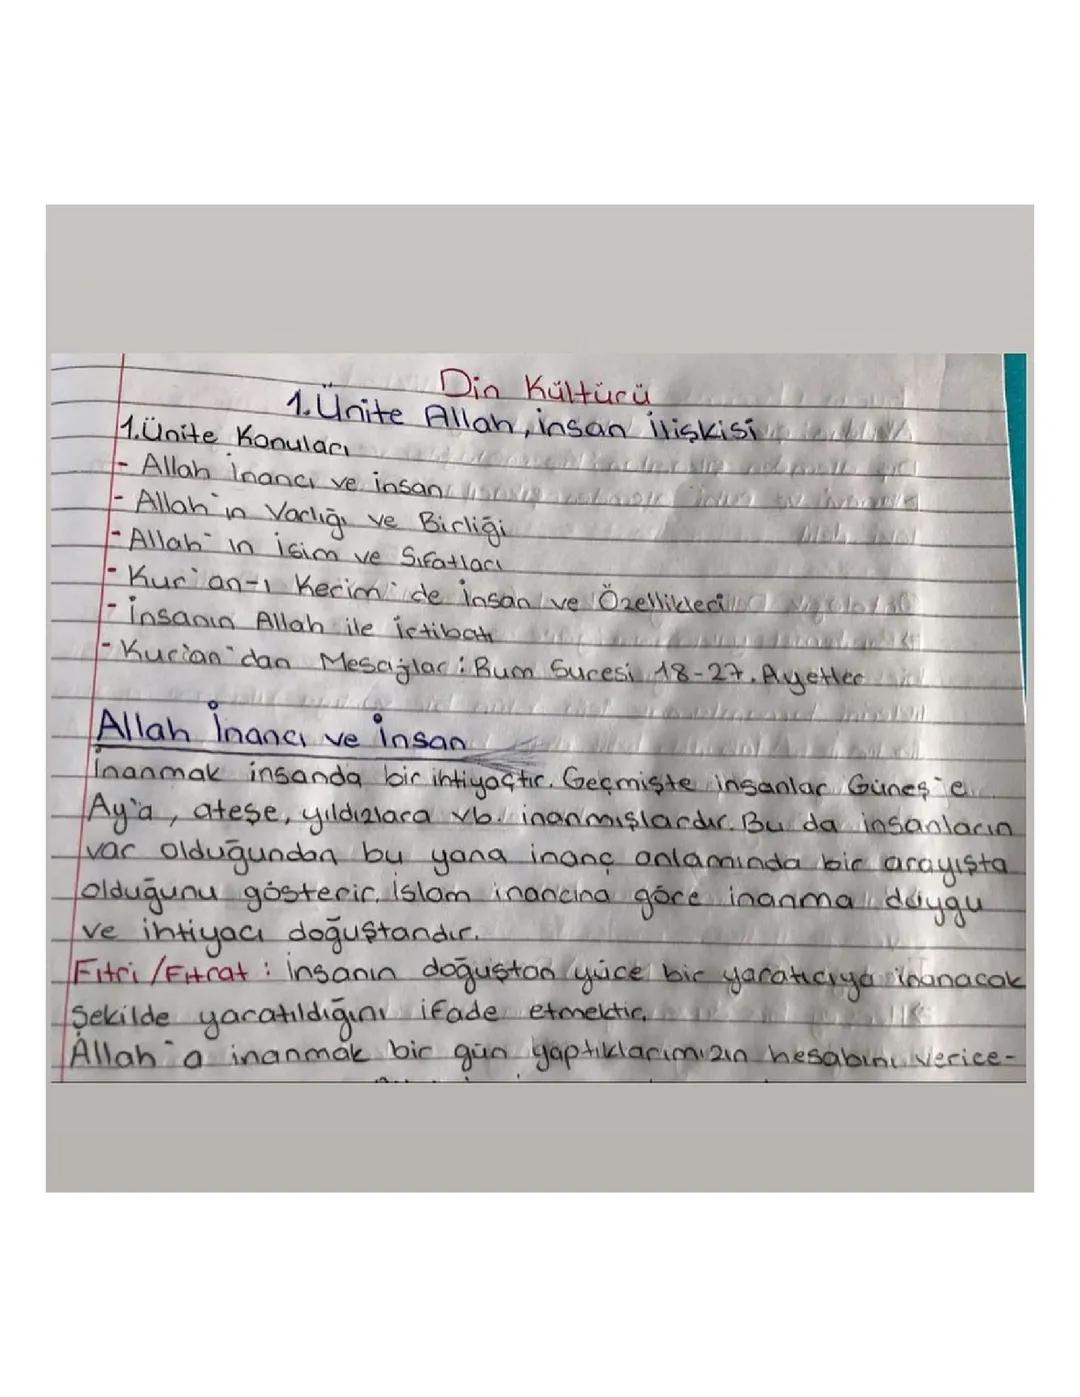 Din Kültürü
1.Ünite Allah, insan ilişkisi
1.Ünite Konuları
- Allah İnancı ve insan
- Allah'ın Varlığı ve Birliği
- Allah'ın İsim ve Sıfatları
- Kur'an-ı Kerim'de İnsan ve Özellikleri
- İnsanın Allah ile İrtibatı
- Kur'an'dan Mesajlar: Rum Suresi 18-27. Ayetler
Allah İnancı ve İnsan
İnanmak insanda bir ihtiyaçtır. Geçmişte insanlar Güneş'e
Ay'a, ateşe, yıldızlara vb. inanmışlardır. Bu da insanların
var olduğundan bu yana inanç anlamında bir arayışta
olduğunu gösterir. İslam inancına göre inanma duygu
ve ihtiyacı doğuştandır.
Fıtri/Fıtrat: İnsanın doğuştan yüce bir yaratıcıya inanacak
Şekilde yaratıldığını ifade etmektir.
Allah'a inanmak bir gün yaptıklarımızın hesabını verice-